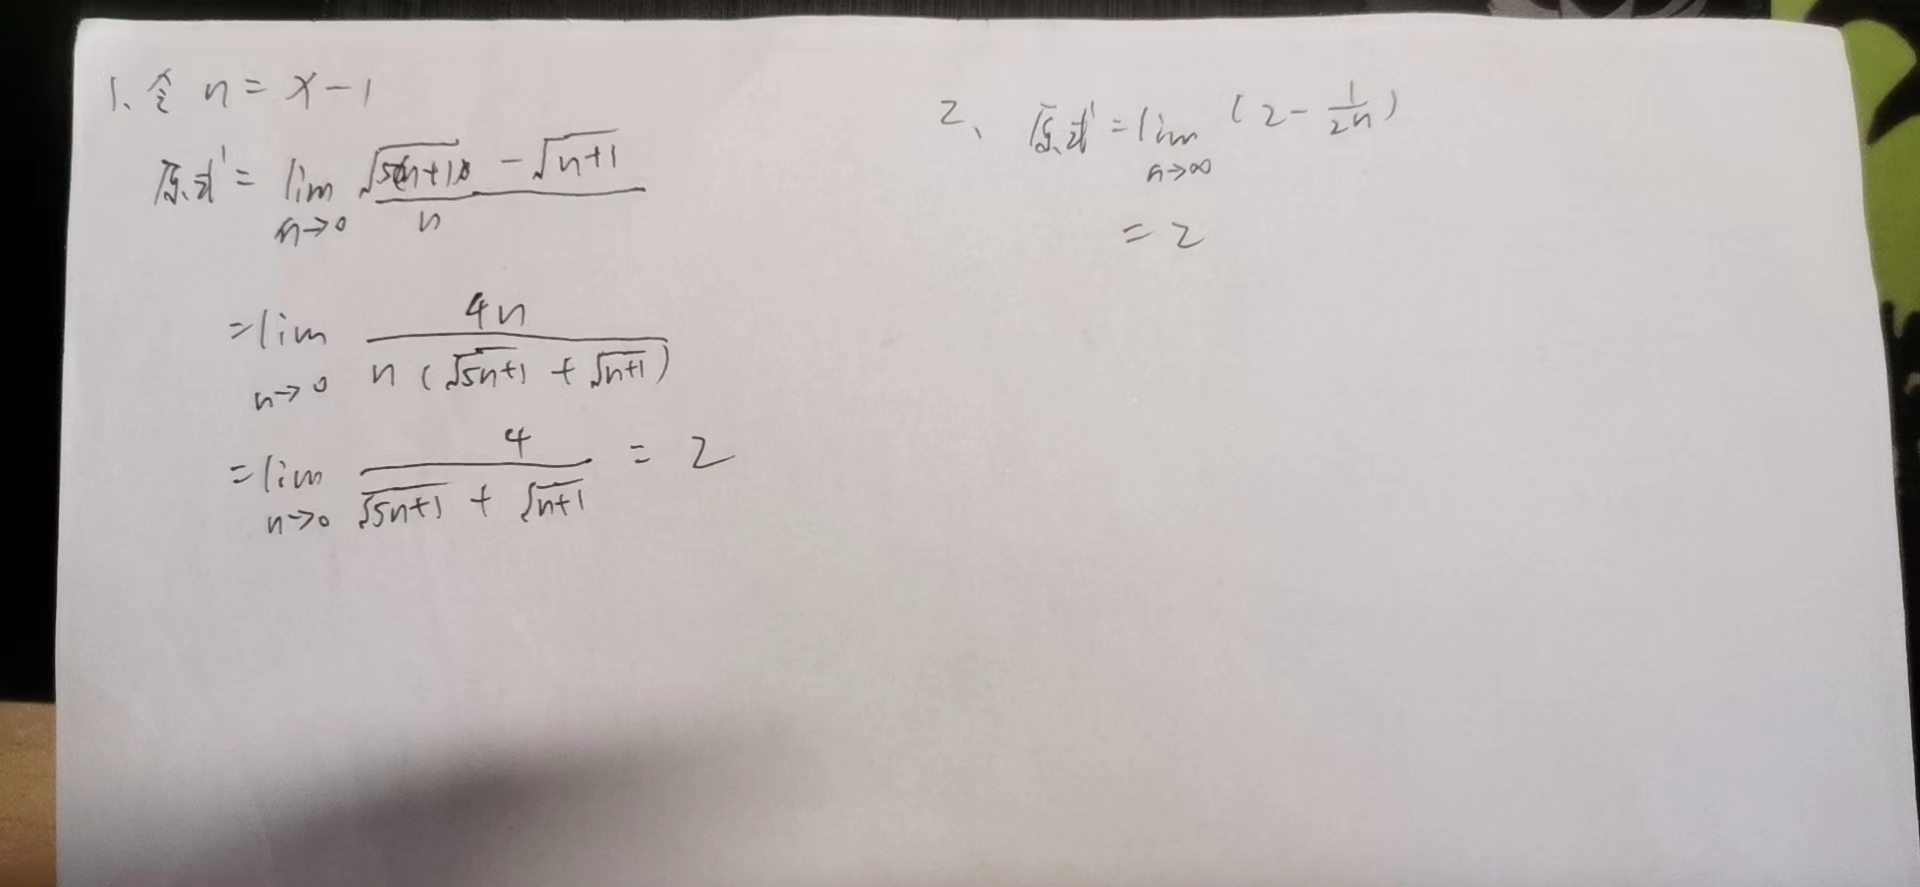 1、令 n = x - 1
原式 = lim n→0 (√5n+1 - √n+1) / n
= lim n→0 4n / n(√5n+1 + √n+1)
= lim n→0 4 / √5n+1 + √n+1 = 2
2、原式 = lim n→∞ (2 - 1/2n)
= 2